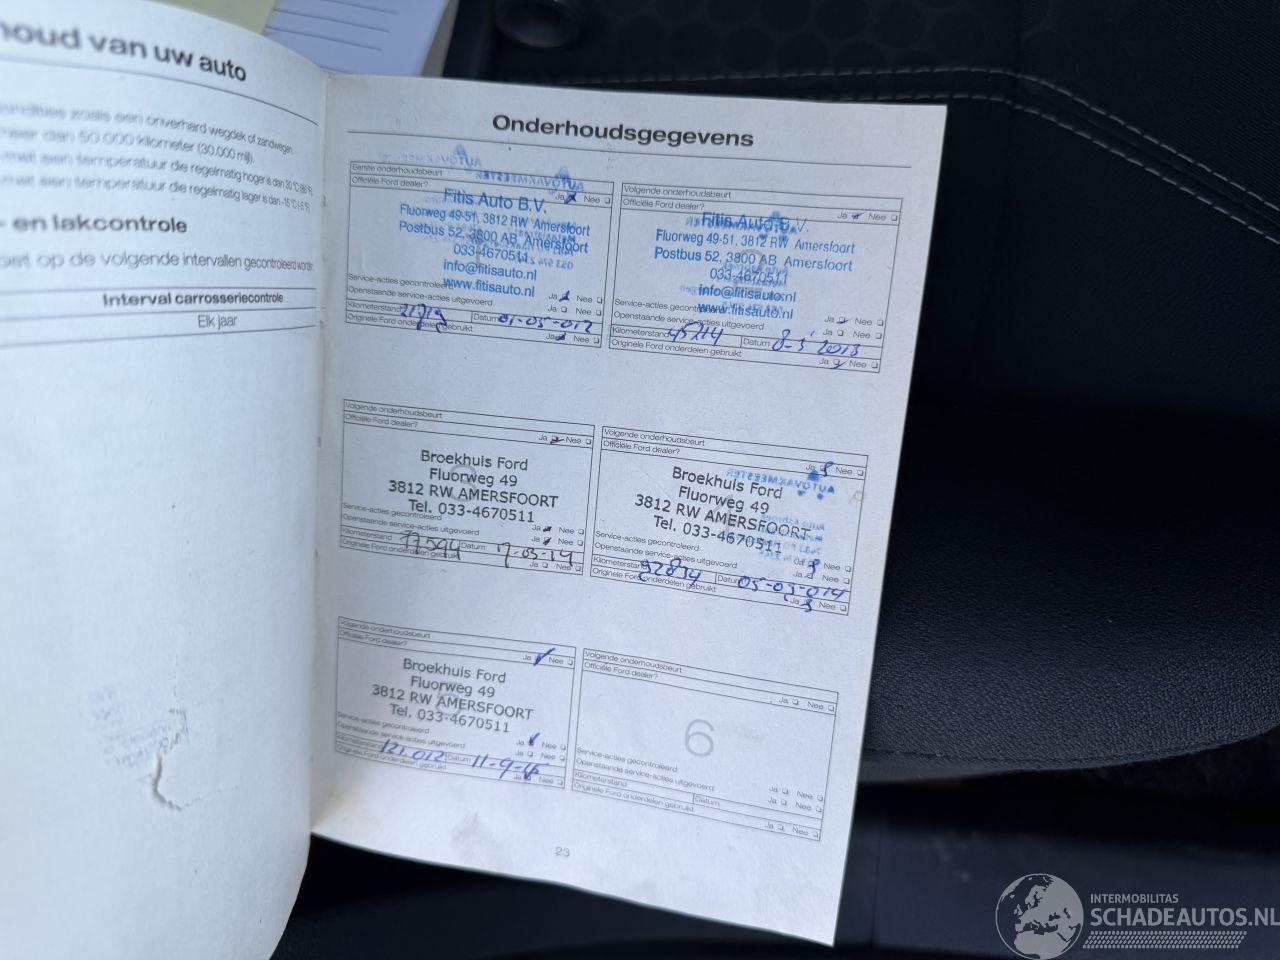 houd van uw auto
condities zoals een onverhard wegdek of zandwegen.
meer dan 50.000 kilometer (30.000 mijl).
met een temperatuur die regelmatig hoger is dan 30 °C (86 °F)
met een temperatuur die regelmatig lager is dan -15 °C (-5 °F)
- en lakcontrole
moet op de volgende intervallen gecontroleerd worden:
Interval carrosseriecontrole
Elk jaar
Onderhoudsgegevens
Eerste onderhoudsbeurt
Officiële Ford dealer?
Ja Nee
Fitis Auto B.V.
Fluorweg 49-51, 3812 RW Amersfoort
Postbus 52, 3800 AB Amersfoort
033-4670511
info@fitisauto.nl
www.fitisauto.nl
Service-acties gecontroleerd
Ja Nee
Openstaande service-acties uitgevoerd
Ja Nee
Kilometerstand Datum 01-05-012
Originele Ford onderdelen gebruikt
Ja Nee
Volgende onderhoudsbeurt
Officiële Ford dealer?
Ja Nee
Fitis Auto B.V.
Fluorweg 49-51, 3812 RW Amersfoort
Postbus 52, 3800 AB Amersfoort
033-4670511
info@fitisauto.nl
www.fitisauto.nl
Service-acties gecontroleerd
Ja Nee
Openstaande service-acties uitgevoerd
Ja Nee
Kilometerstand 45214 Datum 8-5 2013
Originele Ford onderdelen gebruikt
Ja Nee
Volgende onderhoudsbeurt
Officiële Ford dealer?
Ja Nee
3
Broekhuis Ford
Fluorweg 49
3812 RW AMERSFOORT
Tel. 033-4670511
Service-acties gecontroleerd
Ja Nee
Openstaande service-acties uitgevoerd
Ja Nee
Kilometerstand 77594 Datum 17-03-14
Originele Ford onderdelen gebruikt
Ja Nee
Volgende onderhoudsbeurt
Officiële Ford dealer?
Ja Nee
4
Broekhuis Ford
Fluorweg 49
3812 RW AMERSFOORT
Tel. 033-4670511
Service-acties gecontroleerd
Ja Nee
Openstaande service-acties uitgevoerd
Ja Nee
Kilometerstand 92834 Datum 05-03-014
Originele Ford onderdelen gebruikt
Ja Nee
Volgende onderhoudsbeurt
Officiële Ford dealer?
Ja Nee
Broekhuis Ford
Fluorweg 49
3812 RW AMERSFOORT
Tel. 033-4670511
Service-acties gecontroleerd
Ja Nee
Openstaande service-acties uitgevoerd
Ja Nee
Kilometerstand 121.012 Datum 11-9-15
Originele Ford onderdelen gebruikt
Ja Nee
Volgende onderhoudsbeurt
Officiële Ford dealer?
Ja Nee
6
Service-acties gecontroleerd
Ja Nee
Openstaande service-acties uitgevoerd
Ja Nee
Kilometerstand Datum
Originele Ford onderdelen gebruikt
Ja Nee
23
INTERMOBILITAS
SCHADEAUTOS.NL